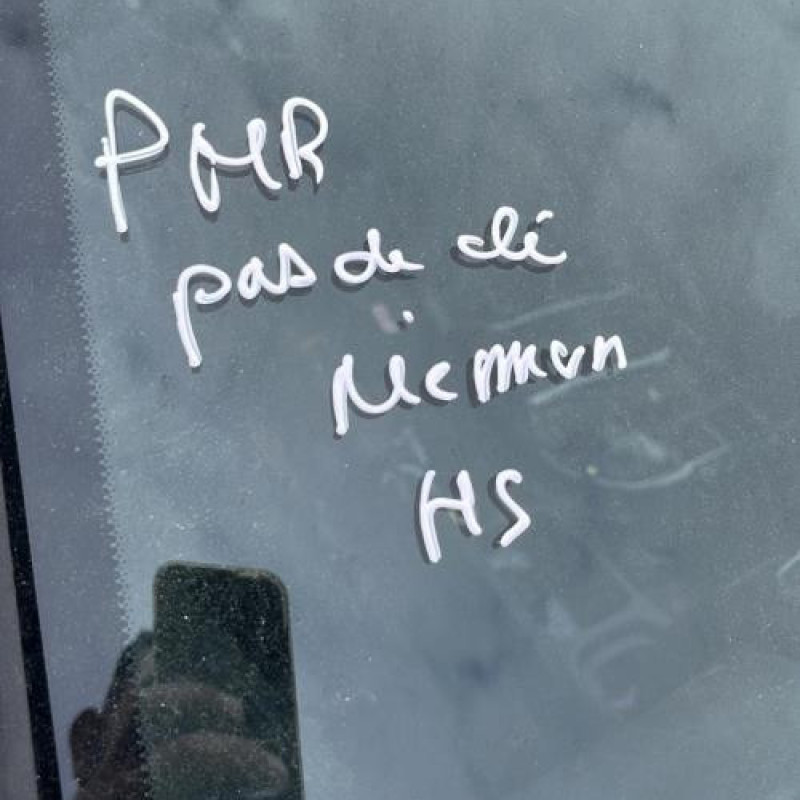 PMR
pas de clé
Nieman
HS